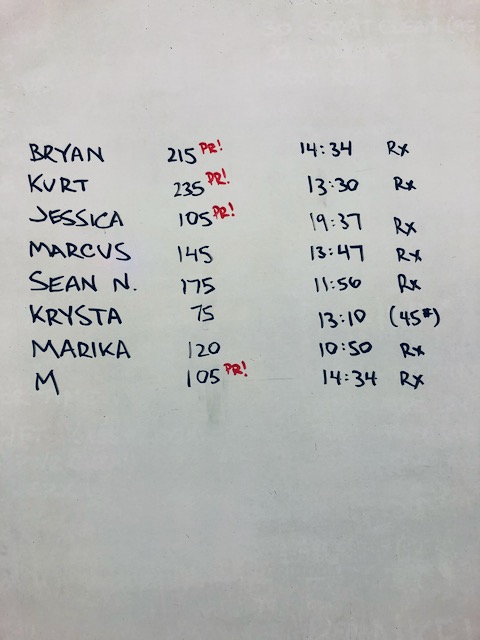 BRYAN 215 PR! 14:34 Rx
KURT 235 PR! 13:30 Rx
JESSICA 105 PR! 19:37 Rx
MARCUS 145 13:47 Rx
SEAN N. 175 11:56 Rx
KRYSTA 75 13:10 (45#)
MARIKA 120 10:50 Rx
M 105 PR! 14:34 Rx